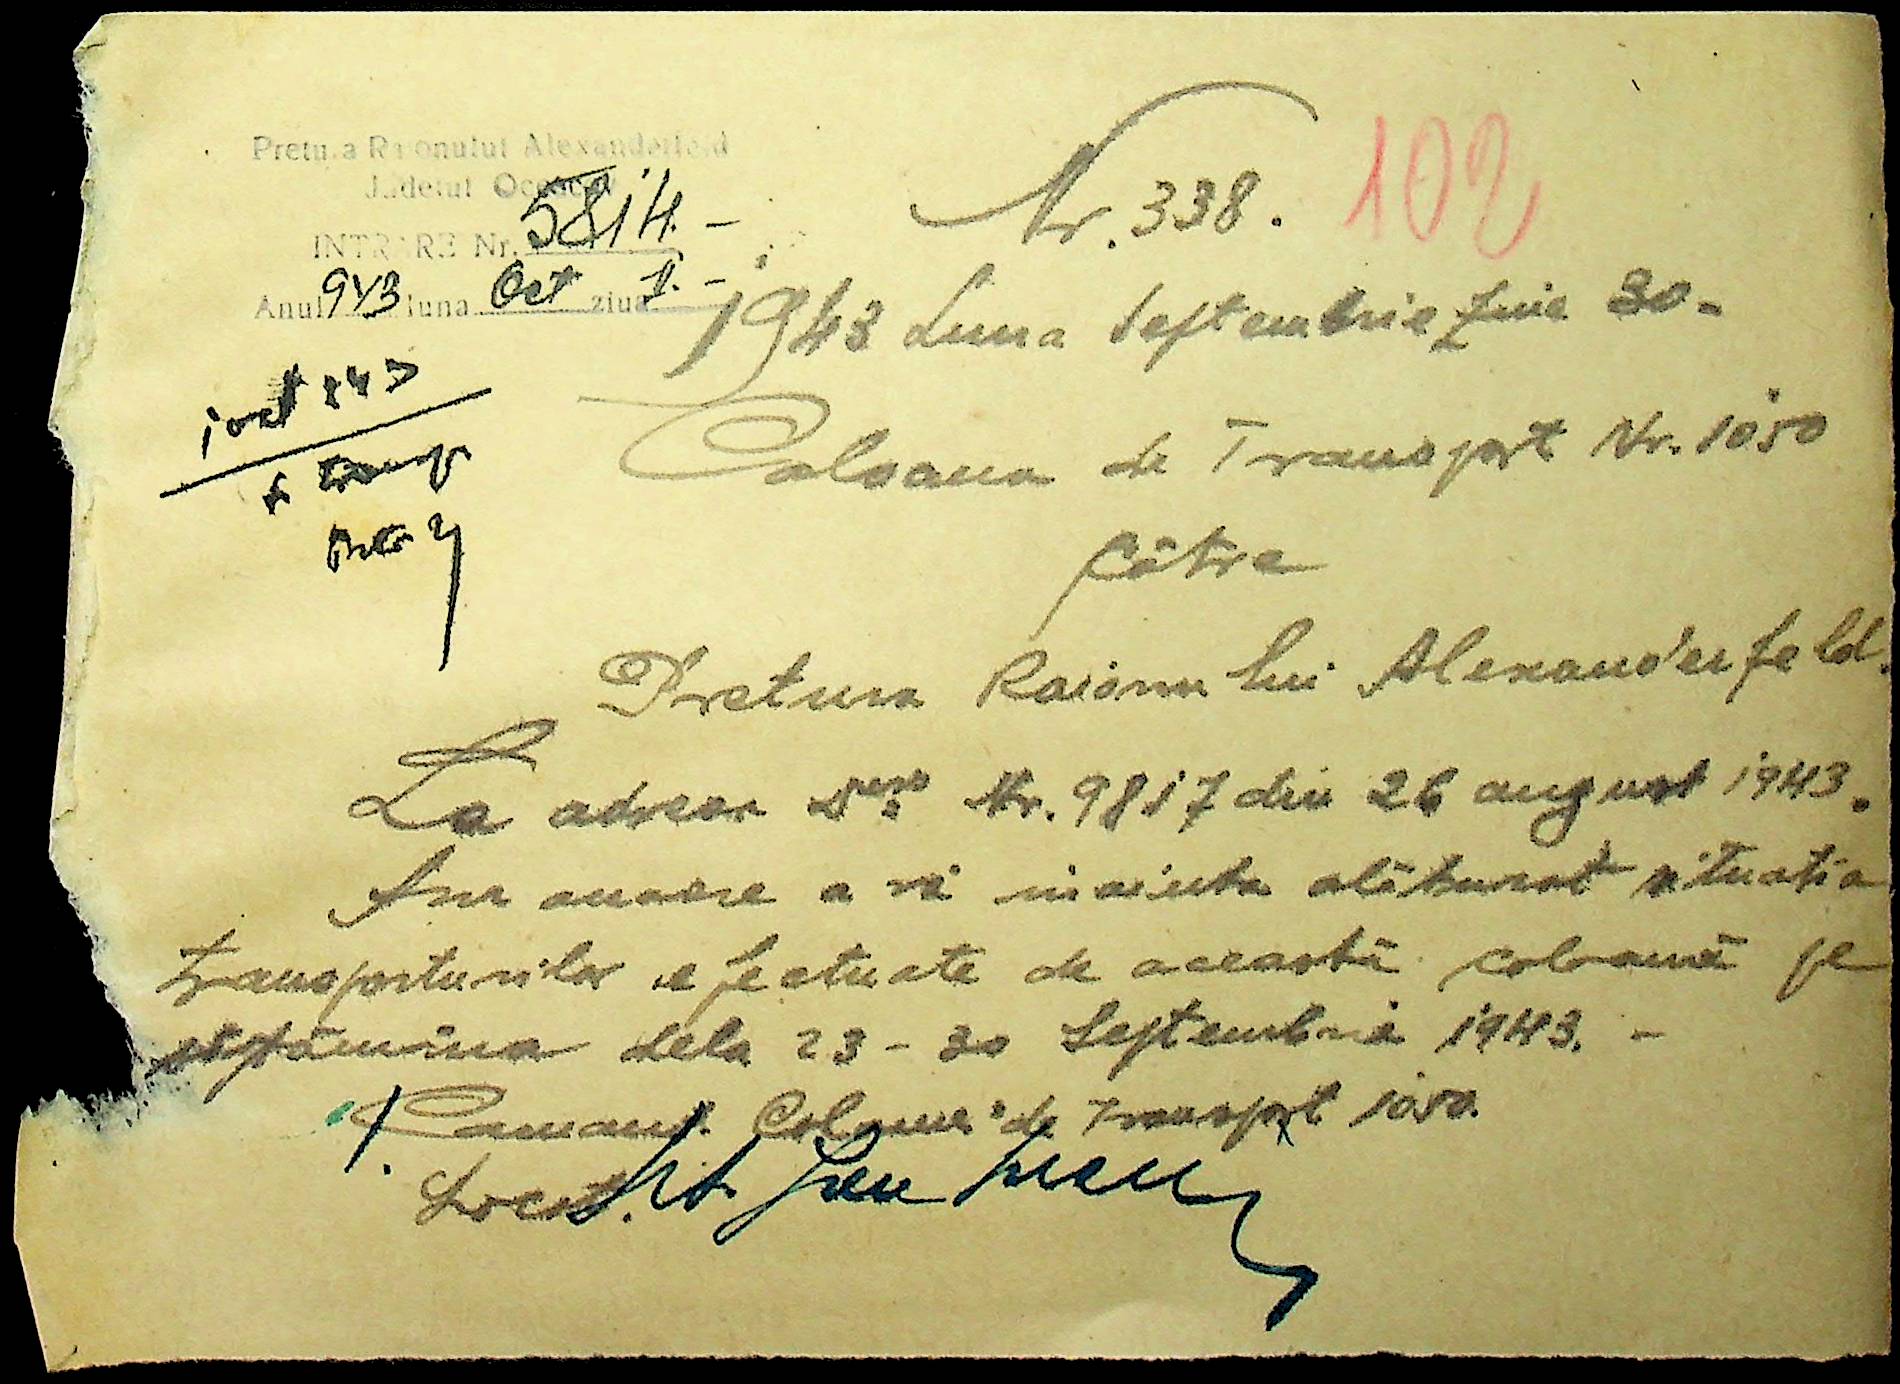 Pretura Raionului Alexanderfeld
Judetul Oceacov
INTRARE Nr. 5814.-
Anul 943 luna Oct ziua 1.-
Nr. 338.
102
1943 Luna Septembrie Zuie 30-
1 oct 943
Coloana de Transport Nr. 1050
Către
Pretura Raionului Alexanderfeld.
La adresa Dvs: Nr. 9817 din 26 august 1943.
Am onoare a vă inainta alăturat situatia
transporturilor efectuate de această coloană pe
săptămîna dela 23-30 Septembrie 1943.-
Comand. Coloanei de Transport 1050.
Locot.